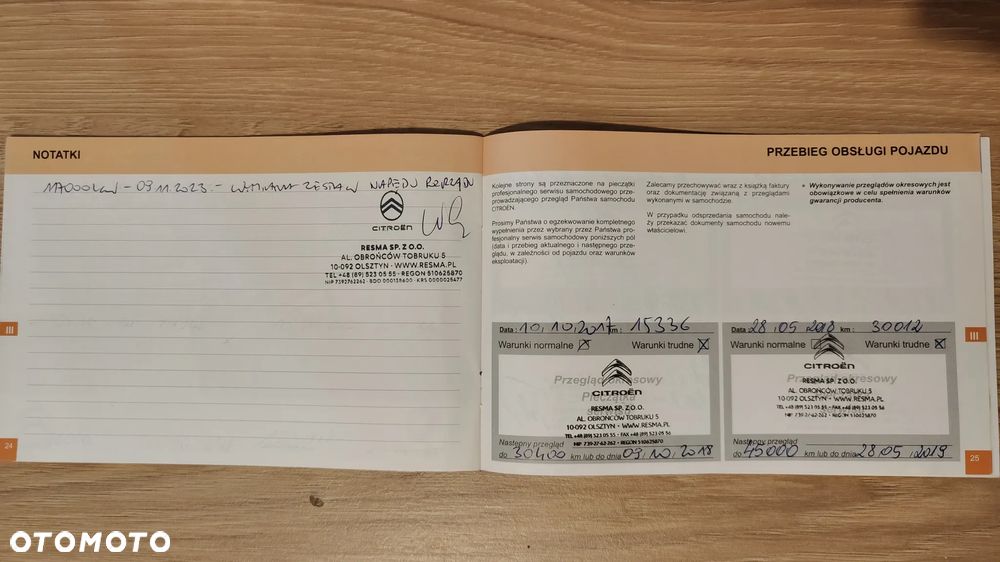 NOTATKI
- 09.11.2023 - WYMIANA ZESTAW NAPĘDU ROZRZĄDU
CITROËN
RESMA SP. Z O.O.
AL. OBROŃCÓW TOBRUKU 5
10-092 OLSZTYN · WWW.RESMA.PL
TEL +48 (89) 523 05 55 · REGON 510625870
NIP 7392762262 · BDO 000135600 · KRS 0000025477
III
24
PRZEBIEG OBSŁUGI POJAZDU
Kolejne strony są przeznaczone na pieczątki
profesjonalnego serwisu samochodowego prze-
prowadzającego przegląd Państwa samochodu
CITROËN.
Prosimy Państwa o egzekwowanie kompletnego
wypełnienia przez wybrany przez Państwa pro-
fesjonalny serwis samochodowy poniższych pól
(data i przebieg aktualnego i następnego prze-
glądu, w zależności od pojazdu oraz warunków
eksploatacji).
Zalecamy przechowywać wraz z książką faktury
oraz dokumentację związaną z przeglądami
wykonanymi w samochodzie.
W przypadku odsprzedania samochodu nale-
ży przekazać dokumenty samochodu nowemu
właścicielowi.
Wykonywanie przeglądów okresowych jest
obowiązkowe w celu spełnienia warunków
gwarancji producenta.
Data : 10.10.2017 km : 15336
Warunki normalne Warunki trudne
Przegląd okresowy
Pieczątka
CITROËN
RESMA SP. Z O.O.
AL. OBROŃCÓW TOBRUKU 5
10-092 OLSZTYN · WWW.RESMA.PL
TEL +48 (89) 523 05 55 · FAX +48 (89) 523 05 56
NIP 739-27-62-262 · REGON 510625870
Następny przegląd
do 30400 km lub do dnia 09.10.2018
Data : 28.05.2018 km : 30012
Warunki normalne Warunki trudne
Przegląd okresowy
CITROËN
RESMA SP. Z O.O.
AL. OBROŃCÓW TOBRUKU 5
10-092 OLSZTYN · WWW.RESMA.PL
TEL +48 (89) 523 05 55 · FAX +48 (89) 523 05 56
Następny przegląd
do 45000 km lub do dnia 28.05.2019
III
25
OTOMOTO